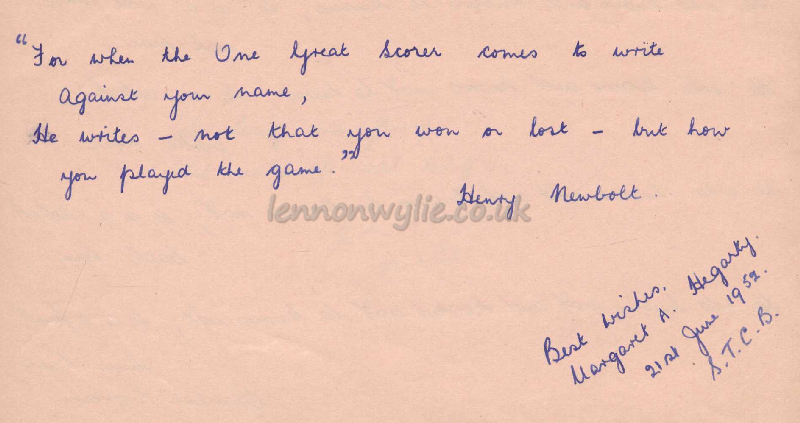 "For when the One Great Scorer comes to write
against your name,
He writes - not that you won or lost - but how
you played the game."
Henry Newbolt.
lennonwylie.co.uk
Best wishes.
Margaret A. Hegarty.
21st June 1952.
S.T.C.B.